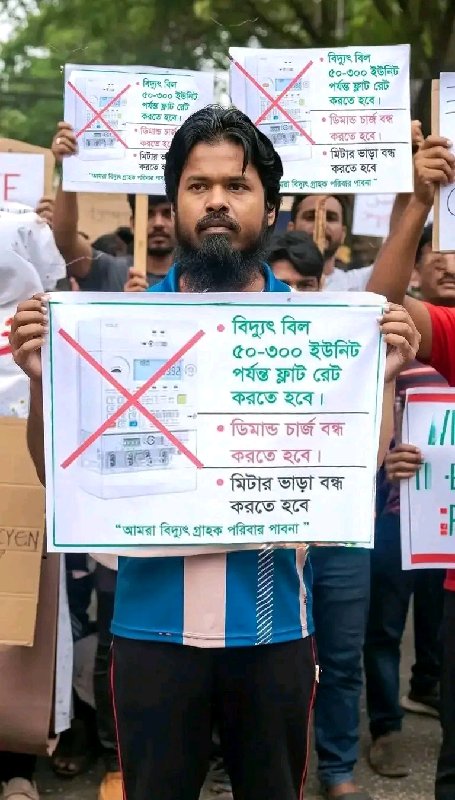 বিদ্যুৎ বিল
৫০-৩০০ ইউনিট
পর্যন্ত ফ্লাট রেট
করতে হবে।
ডিমান্ড চার্জ বন্ধ
করতে হবে।
মিটার ভাড়া বন্ধ
"আমরা বিদ্যুৎ গ্রাহক পরিবার পাবনা
বিদ্যুৎ বিল
৫০-৩০০ ইউনিট
পর্যন্ত ফ্লাট রেট
করতে হবে।
ডিমান্ড চার্জ বন্ধ
করতে হবে।
মিটার ভাড়া বন্ধ
আমরা বিদ্যুৎ গ্রাহক পরিবার পাবনা
বিদ্যুৎ বিল
৫০-৩০০ ইউনিট
পর্যন্ত ফ্লাট রেট
করতে হবে।
ডিমান্ড চার্জ বন্ধ
করতে হবে।
মিটার ভাড়া বন্ধ
করতে হবে
"আমরা বিদ্যুৎ গ্রাহক পরিবার পাবনা"
YEN